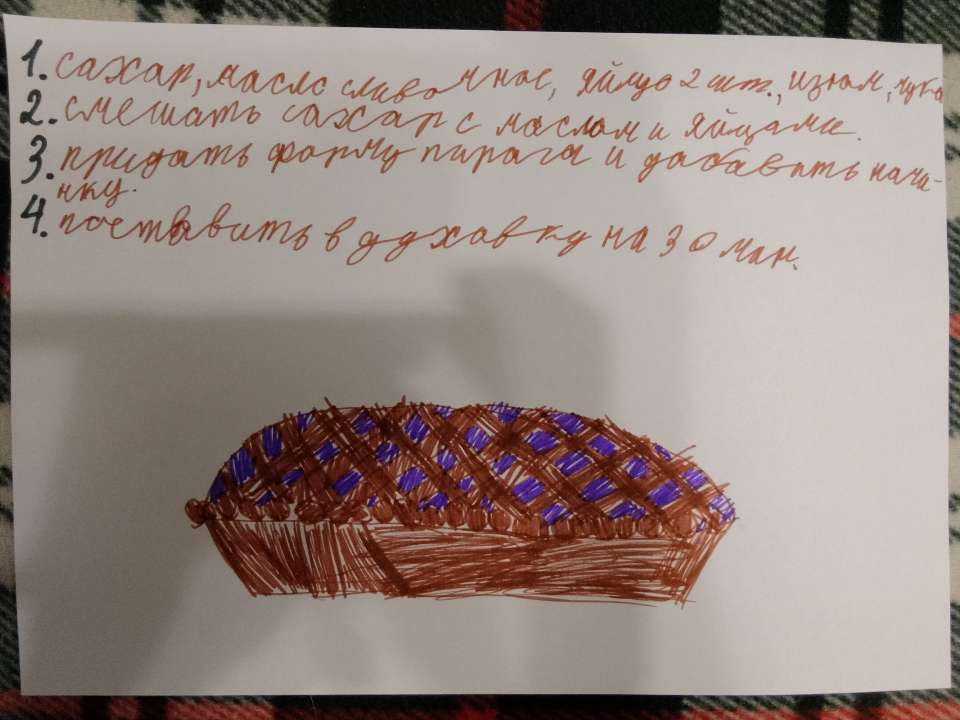 1. сахар, масло сливочное, яйцо 2 шт., изюм,
2. смешать сахар с маслом и яйцами.
3. придать форму пирога и дабавить начи-
нку.
4. поставить в духавку на 30 мин.